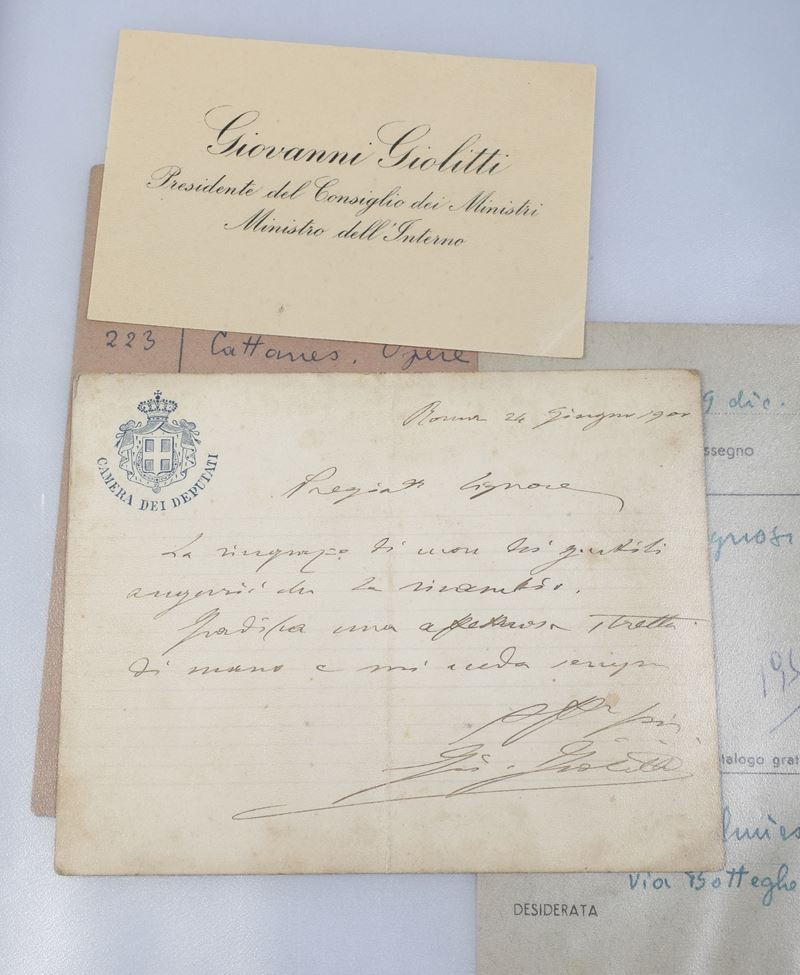 Giovanni Giolitti
Presidente del Consiglio dei Ministri
Ministro dell'Interno
223 Cattaneo. Opere
CAMERA DEI DEPUTATI
Roma 24 Giugno 1901
Pregiat. Signore
La ringrazio di cuore dei gentili
augurii che Le ricambio.
Gradisca una affettuosa stretta
di mano e mi creda sempre
Giov. Giolitti
9 dic.
ssegno
gnosi
195
talogo grat
Via Botteghe
DESIDERATA